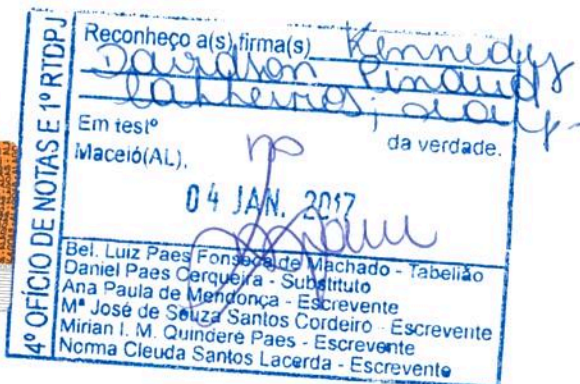 4º OFÍCIO DE NOTAS E 1º RTDPJ
Reconheço a(s) firma(s) Kennedy
Davidson Pinaud
Calheiros;
Em testº da verdade.
Maceió(AL),
04 JAN. 2017
Bel. Luiz Paes Fonseca de Machado - Tabelião
Daniel Paes Cerqueira - Substituto
Ana Paula de Mendonça - Escrevente
Mª José de Souza Santos Cordeiro - Escrevente
Mirian I. M. Quinderé Paes - Escrevente
Norma Cleuda Santos Lacerda - Escrevente